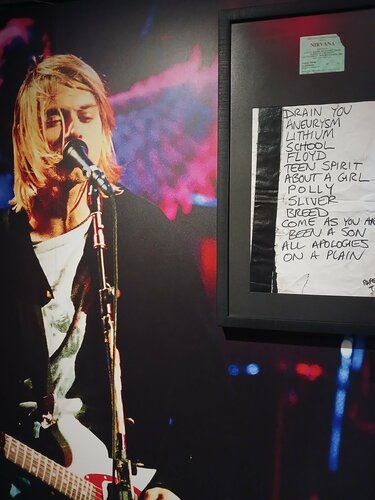 NIRVANA
DRAIN YOU
ANEURYSM
LITHIUM
SCHOOL
FLOYD
TEEN SPIRIT
ABOUT A GIRL
POLLY
SLIVER
BREED
COME AS YOU AR
BEEN A SON
ALL APOLOGIES
ON A PLAIN